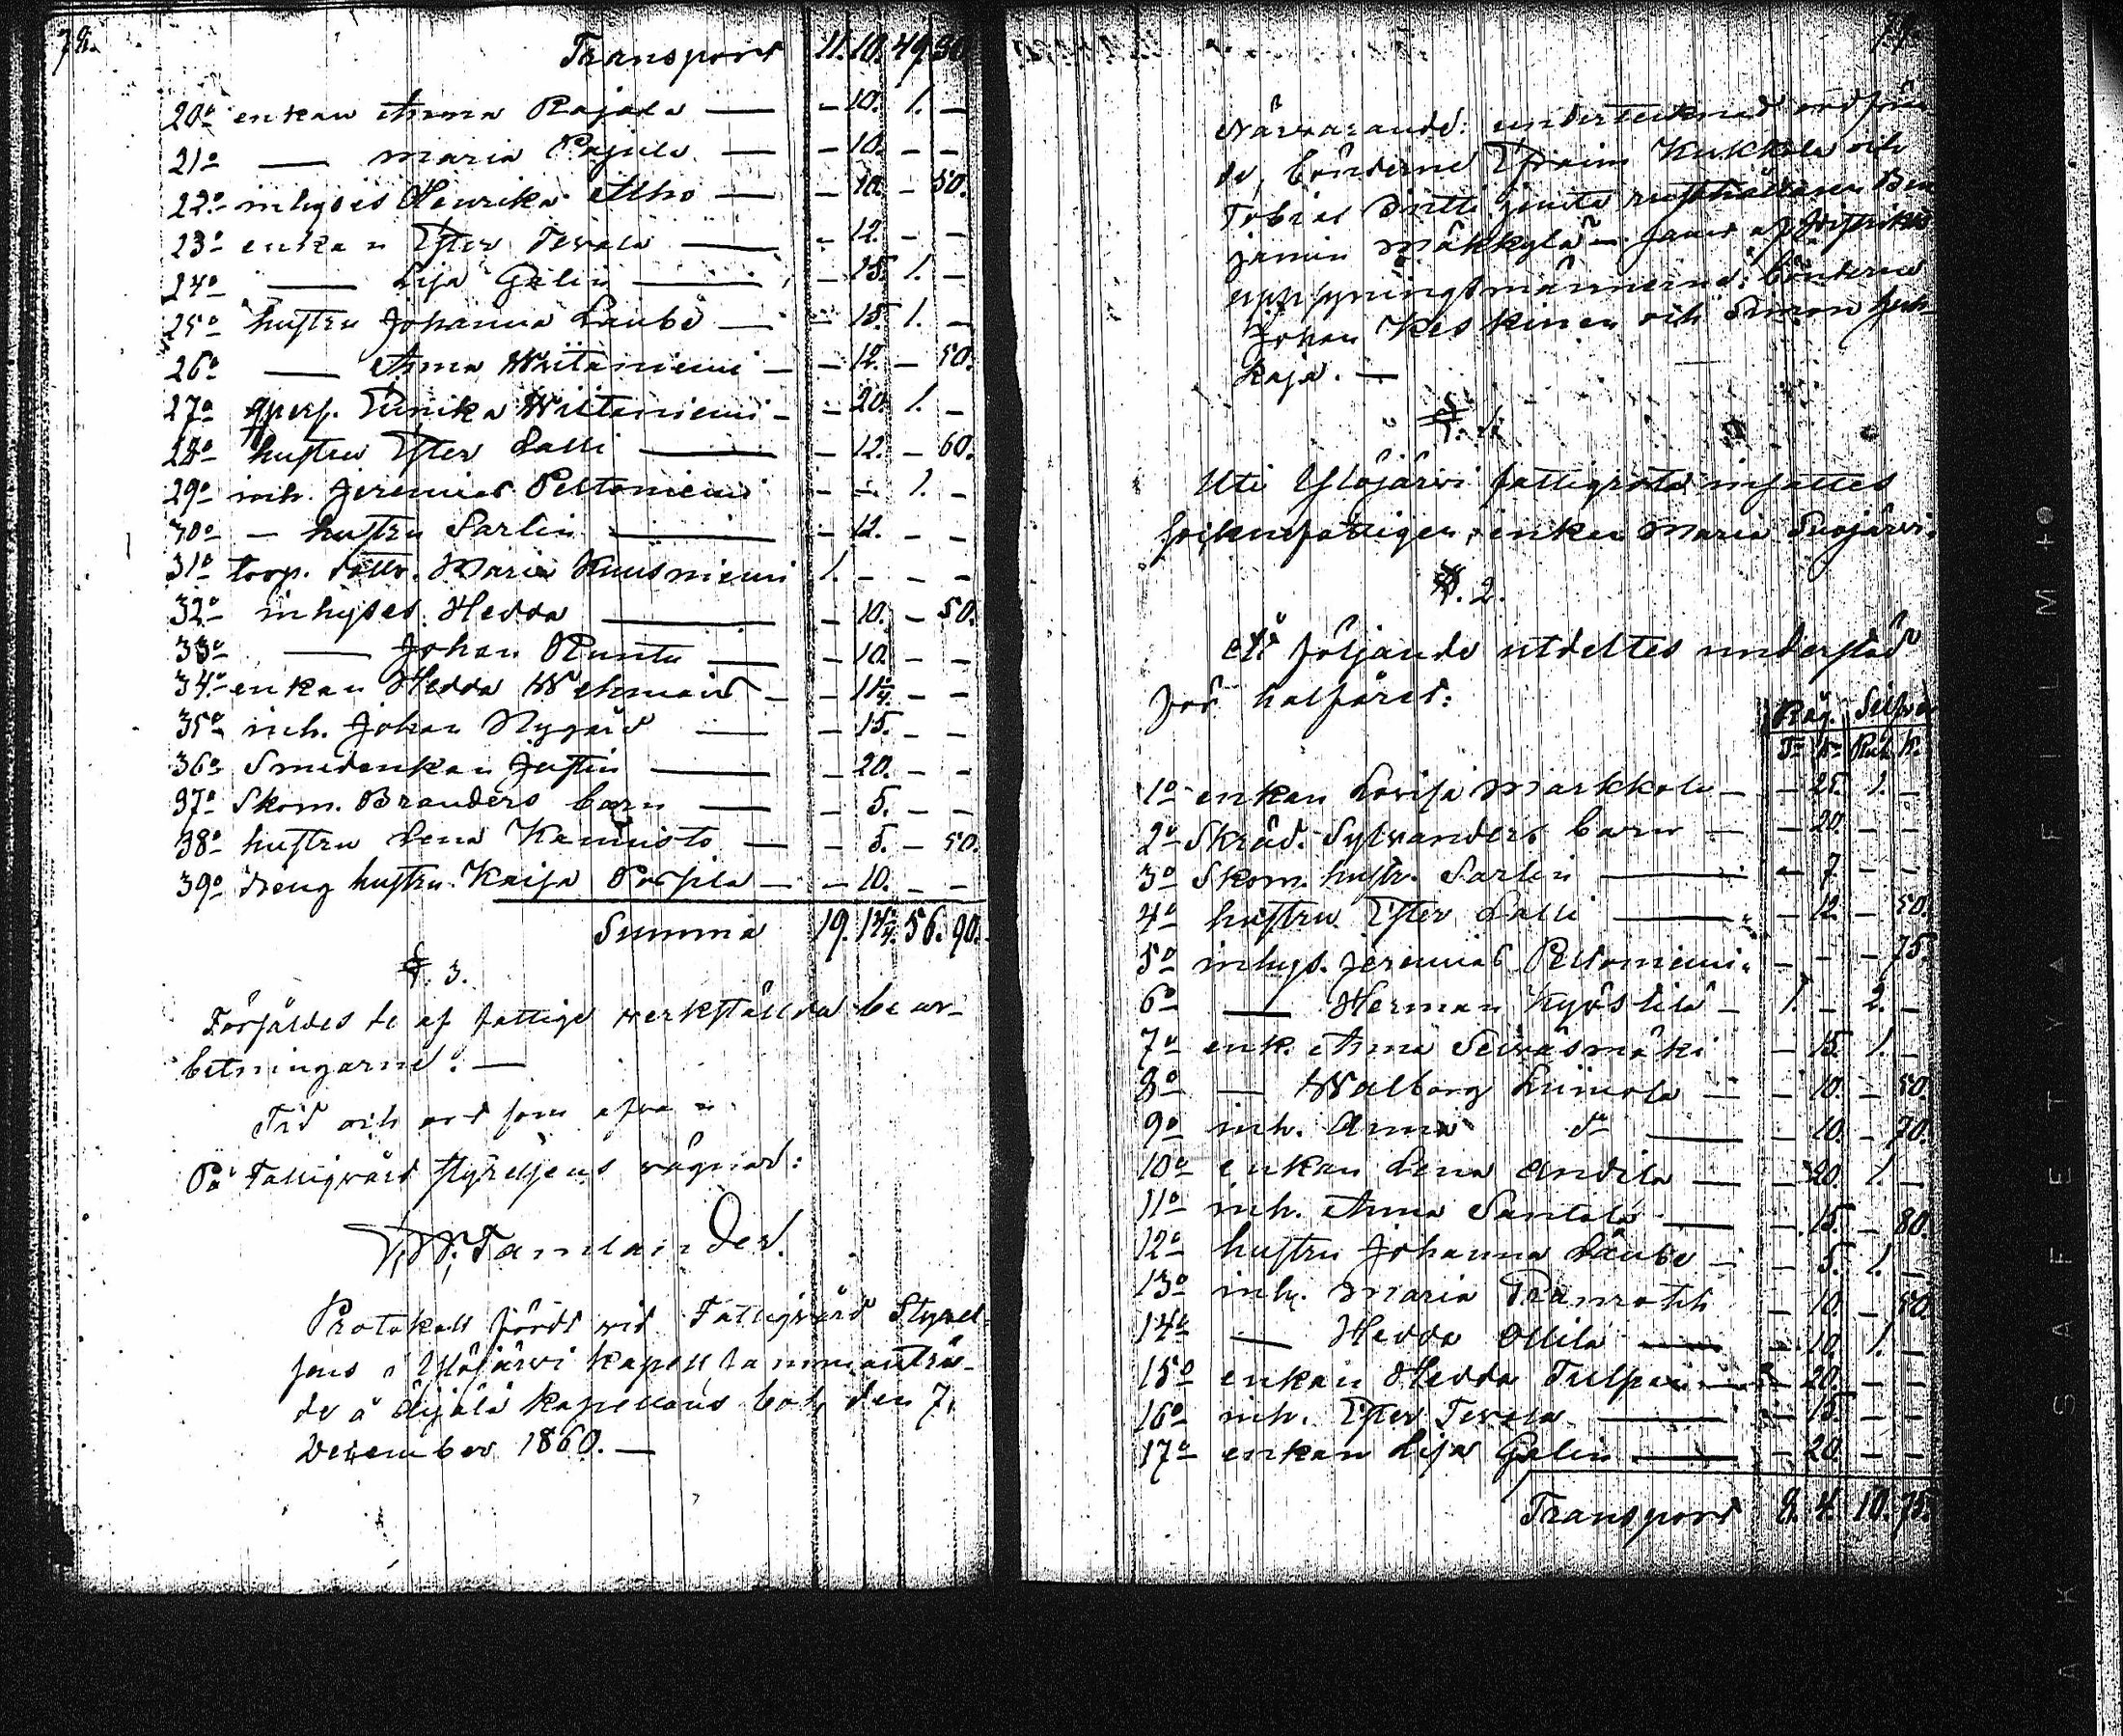 78.
Transport 11. 10. 49. 30
20o enkan Anna Rajala — – 10. 1. –
21o — Maria Pajula — – 10. – –
22o inhyses Henrika Alho — – 10. – 50.
23o enkan Ester Tevala — – 12. – –
24o — Lisa Gelin — – 25. 1. –
25o hustru Johanna Laube — – 15. 1. –
26o — Anna Wiitaniemi – – 12. – 50.
27o Eunika Wiitaniemi – – 20. 1. –
28o hustru Ester Lalli — – 12. – 60.
29o inh. Jeremias Peltoniemi – –. 1. –
30o – hustru Sarlin — – 12. – –
31o torp. dottr. Maria Kuusniemi 1. – – –
32o inhyses Hedda — – 10. – 50.
33o — Johan Runtu — – 10. – –
34o enkan Hedda Wehmais – – 11¼. – –
35o inh. Johan Nygård — – 15. – –
36o Smedenkan Justin — – 20. – –
37o Skom. Branders barn — – 5. – –
38o hustru Lena Kannisto — – 5. – 50.
39o dreng hustru Kaisa — – 10. – –
Summa 19. 14¼. 56. 90.
§. 3.
Förfäldes de af fattige verkställda be ar-
betningarne. —
Tid och ort som ofvan.
På Fattigvård styrelsens vägnar:
Tamlander.
Protokoll fördt vid Fattigvård Styrel-
sens i Ylöjärvi kapell sammanträ-
de å kapellans bol, den 7.
December 1860. —
79.
Närvarande: undertecknad ordföran
de, bönderne Efraim Kukkola och
Tobias Antti jemte rusthållaren Ben
jamin Mäkkylä – samt af
uppsyningsmännerne: bönderne
Johan Keskinen och Simon Juh
kaja. —
§. 1.
Uti Ylöjärvi fattigrota insattes
sockenfattigen, enkan Maria Suojärvi.
§. 2.
Åt följande utdeltes understöd
för halfåret:
Råg. Silfver
Tr kr Rub. k.
1o enkan Lovisa Markkola – – 25. 1. –
2o Skräd. Sylvanders barn — – 20. – –
3o Skom. hustr. Sarlin — – 7 – –
4o hustru Ester Lalli — – 12 – 50.
5o inhys. Jeremias Peltoniemi – – – 75.
6o — Herman Kyöstilä – 1. – 2. –
7o enk. Anna Seiväsmäki – 15. 1. –
8o — Walborg Liimola — – 10. – 50.
9o inh. Anna do — – 10. – 70.
10o enkan Lena Andila — – 20. 1. –
11o inh. Anna Santala — – 15. – 80.
12o hustru Johanna Laube – – 5. 1. –
13o inh. Maria – 10. – 50.
14o — Hedda Ollila — – 10. 1. –
15o enkan Hedda – 20. – –
16o inh. Ester Tevala — – 15. – –
17o enkan Lisa Gelin — – 20. – –
Transport 8. 4. 10. 75.
SAFETY FILM